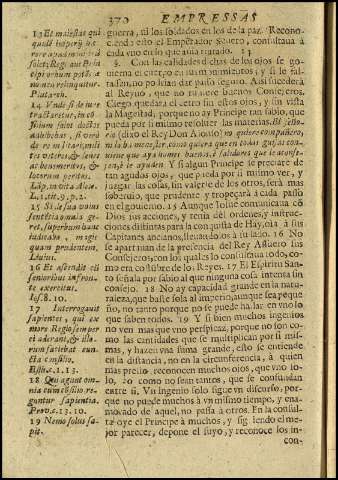 370 EMPRESSAS
13 Et malestas qui
quidē imperij
solet; Regi aut
cipi orbum
nunquam relinquitur.
Plutarch.
14 Vnde si de iure
tractaretur, in cō
silium saint doctos
adhibebat, si verò
de re militari, mili-
tes veteres, & senes
ac benemeritos, &
locorum peritos.
Lāp. in vita Alex.
L.1.tit.9.p.2.
15 Si sua vnius
sententia omnia ge-
ret, superbum hunc
iudicabo, magis
quam prudentem.
Liuius.
16 Et ascendit cū
senioribus in fron-
te exercitus.
Ios. 8. 10.
17 Interrogauit
sapientes, qui ex
more Regio semper
ei aderant, & illo-
rum faciebat cun-
cta consilio.
Esth. c.1.13.
18 Qui agunt om-
nia cum cōsilio re-
guntur sapientia.
Prou. c.13.10.
19 Nemo solus sa-
pit.
guerra, ni los soldados en los de la paz. Recono-
ciendo esto el Emperador Seuero, consultaua à
cada vno en lo que auia tratado. 13
§. Con las calidades dichas de los ojos se go-
uierna el cuerpo en sus mouimientos, y si le fal-
tassen, no podrian dar passo seguro. Assi sucederà
al Reyno, que no tuuiere buenos Consejeros.
Ciego quedarà el cetro sin estos ojos, y sin vista
la Magestad; porque no ay Principe tan sabio, que
pueda por si mismo resoluer las materias. El señorio
(dixo el Rey Don Alonso) no quiere compañero,
ni lo ha menester, como quiera que en todas guisas con-
uiene que aya homes buenos, è sabidores que le aconse-
jen, è le ayuden. Y si algun Principe se preciare de
tan agudos ojos, que pueda por si mismo ver, y
juzgar las cosas, sin valerse de los otros, serà mas
soberuio, que prudente, y tropeçarà à cada passo
en el gouierno. 15 Aunque Iosue comunicaua cõ
Dios sus acciones, y tenia dèl ordenes, y instruc-
ciones distintas para la conquista de Hay, oìa à sus
Capitanes ancianos, lleuandolos à su lado. 16 No
se apartauan de la presencia del Rey Assuero sus
Consejeros, con los quales lo consultaua todo, co-
mo era costũbre de los Reyes. 17 El Espiritu San-
to señala por sabio al que ninguna cosa intenta sin
consejo. 18 No ay capacidad grande en la natu-
raleza, que baste sola al imperio, aunque sea peque-
ño, no tanto porque no se puede hallar en vno lo
que saben todos. 19 Y si bien muchos ingenios
no ven mas que vno perspicaz, porque no son co-
mo las cantidades que se multiplican por si mis-
mas, y hazen vna suma grande, esto se entiende
en la distancia, no en la circunferencia, à quien
mas presto reconocen muchos ojos, que vno so-
lo, 20 como no sean tantos, que se confundan
entre si. Vn ingenio solo sigue vn discurso, por-
que no puede muchos à vn mismo tiempo, y ena-
morado de aquel, no passa à otros. En la consul-
ta oye el Principe à muchos, y siguiendo el me-
jor parecer, depone el suyo, y reconoce los in-
con-